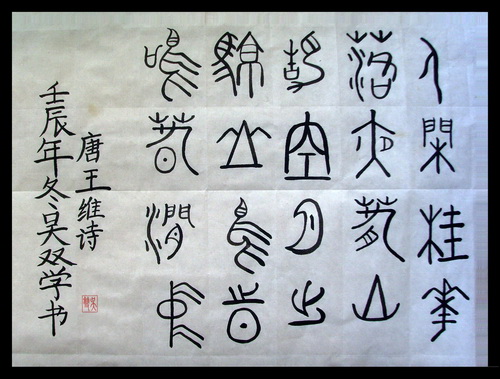 人閑桂華
落夜春山
靜空月出
驚山鳥時
鳴春澗中
唐王维诗
壬辰年冬吴双学书